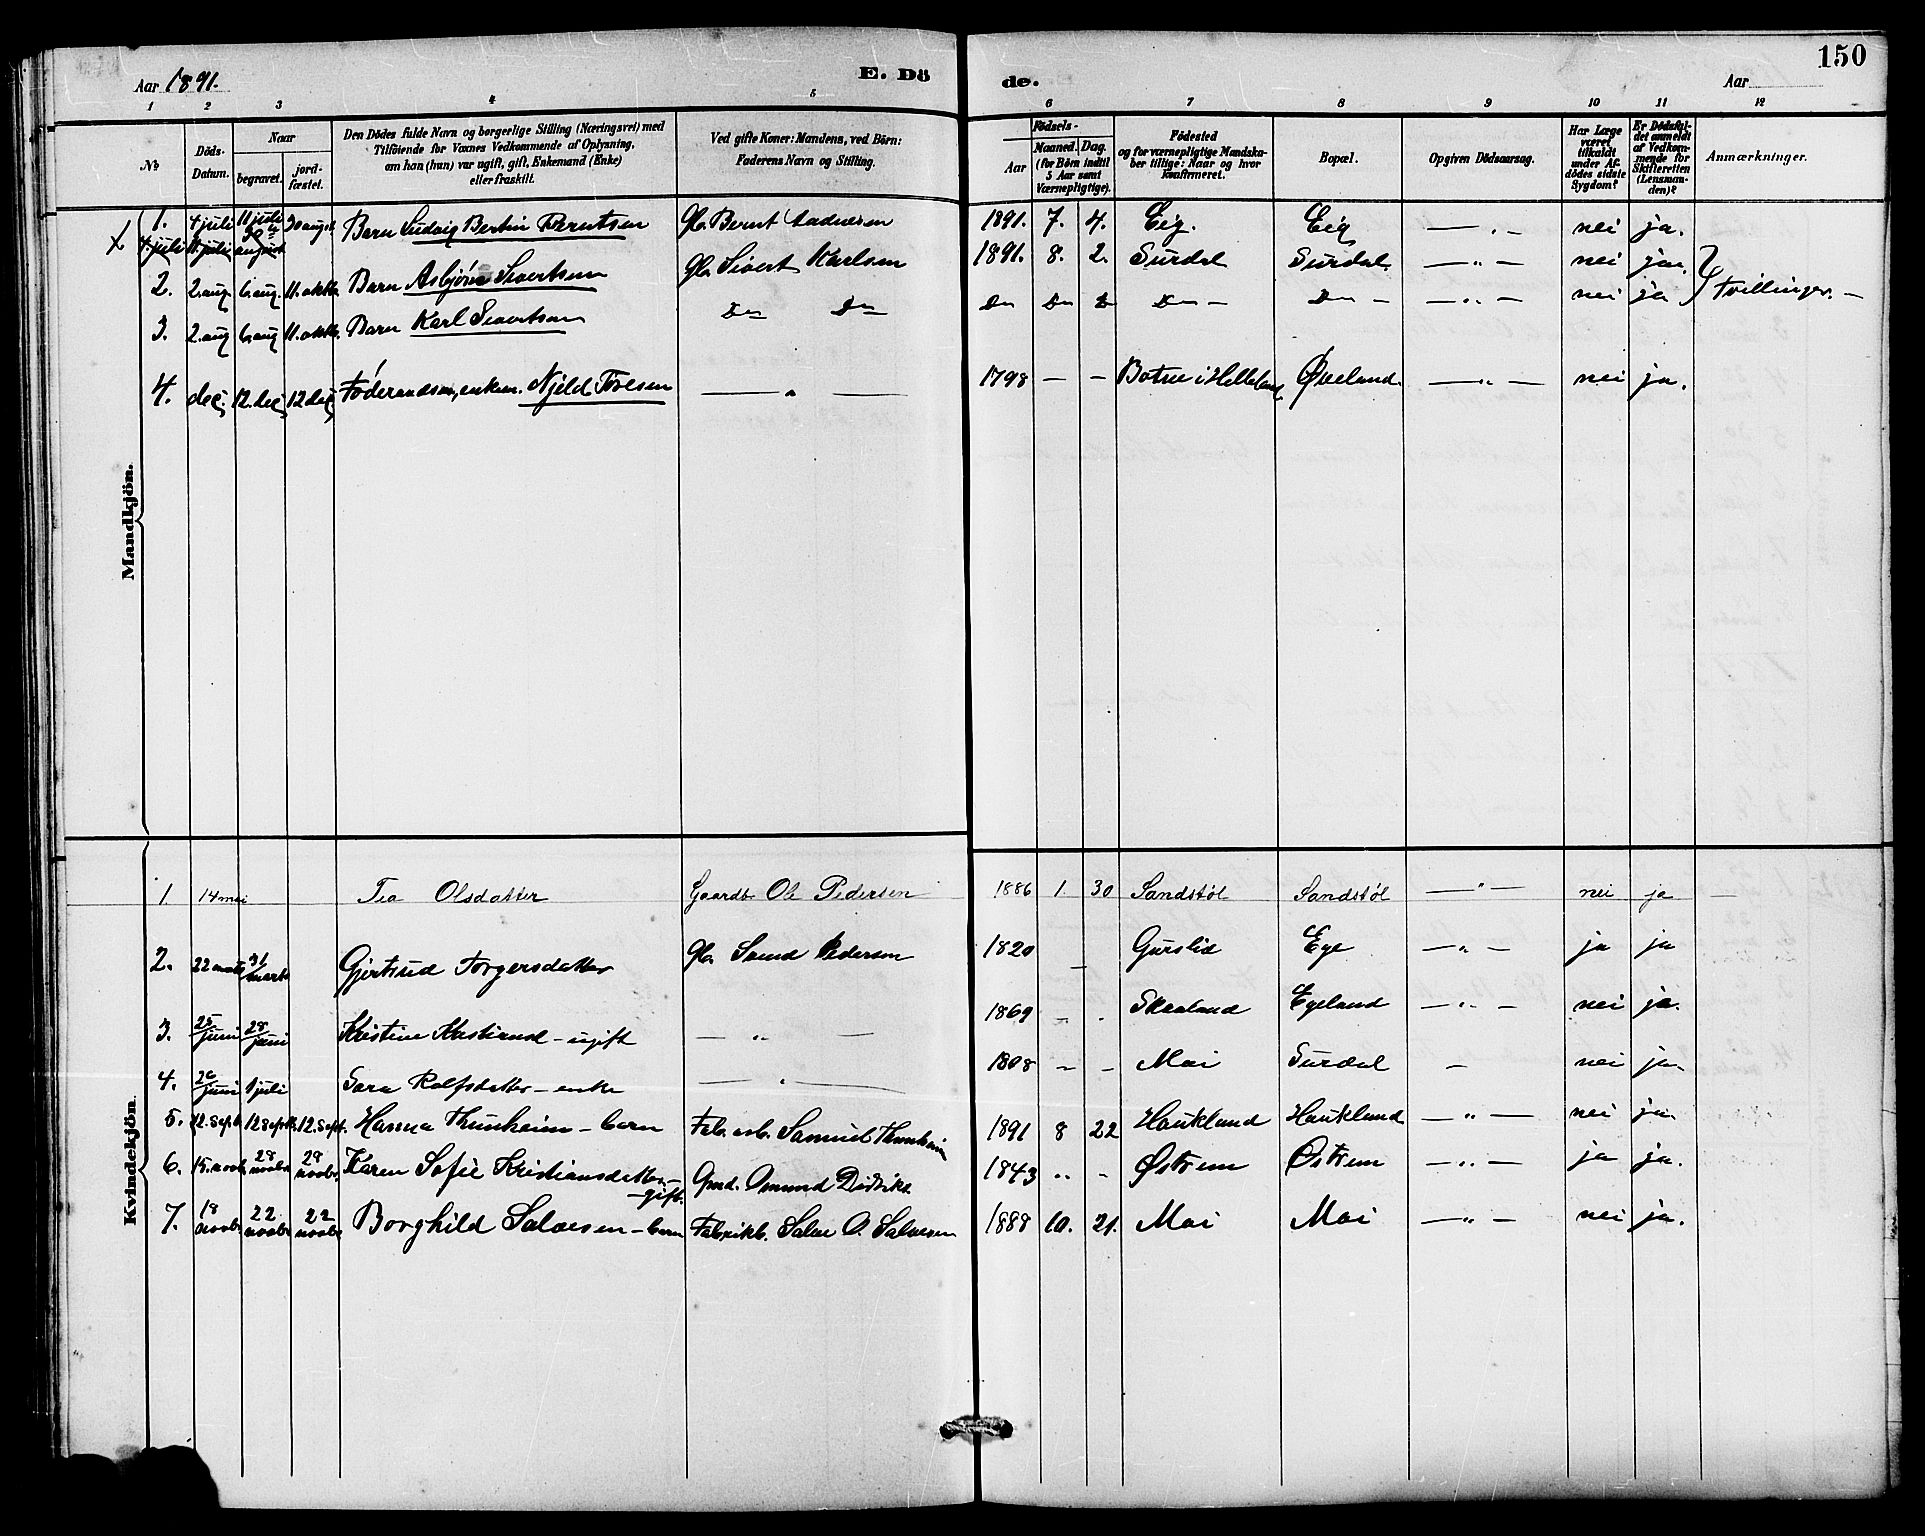 150
Aar 1891.
E. Dö
de.
Aar
1 2 3 4 5 6 7 8 9 10 11 12
No
Döds-Datum.
Naar
begravet.
jord-fæstet.
Den Dödes fulde Navn og borgerlige Stilling (Næringsvei) med
Tilföiende for Voxnes Vedkommende af Oplysning,
om han (hun) var ugift, gift, Enkemand (Enke)
eller fraskilt.
Ved gifte Koner: Mandens, ved Börn:
Faderens Navn og Stilling.
Födsels-
Aar
Maaned. Dag.
(for Börn indtil
5 Aar samt
Værnepligtige).
Födested
og for værnepligtige Mandska-
ber tillige: Naar og hvor
konfirmeret.
Bopæl.
Opgiven Dödsaarsag.
Har Læge
været
tilkaldt
under Af-
dödes sidste
Sygdom?
Er Dödsfal-
det anmeldt
af Vedkom-
mende for
Skifteretten
(Lensman-
den)?
Anmærkninger.
Mandkjön.
1. 4 juli 11 juli 30 august Barn Ludvig Bertin Berntsen Gbr. Bernt 1891. 7. 4. Eig. Eig — " — nei ja.
2. 2. aug. 6. aug. 11. oktb. Barn Asbjörn Sivertsen Gbr. Sivert Karlsen 1891. 8. 2. Surdal Surdal — " — nei ja.
3. 2. aug 6. aug 11. oktb. Barn Karl Sivertsen Do Do Do Do Do Do — Do — — " — nei ja } tvillinger. —
4. dec. 12. dec 12 dec Föderaadsm, enkem. Njeld Toresen — " — 1798 — — Botne i Helleland Øveland. — " — nei ja.
Kvindekjön.
1. 14 mai Tea Olsdatter Gaardb. Ole Pedersen 1886 1. 30 Sandstøl Sandstøl — " — nei ja —
2. 22 marts 31 marts Gjertrud Torgersdatter Gbr. Pedersen 1820 — Gurslid Ege — " — ja ja
3. 25 juni 28 juni Kristine — ugift — " — 1869 — . Skaaland Egeland — " — nei ja.
4. juni 1 juli Sara Rolfsdatter — enke — " — 1808 — — Moi Surdal — nei ja.
5. 12. septb. 12 septb. 12. sept. Hanna Thunheim — barn Fab. arb. Samuel Thunheim 1891 8 22 Haukland Haukland — " — nei ja.
6. 15. novbr 28 novbr 28 novbr. Karen Sofie Kristiansdatter — gift. Gmd. Omund Didriks. 1843 " - Østrem Østrem — " — ja ja.
7. 18 novbr 22 novbr 22 novbr Borghild Salvesen — barn Fabrikb. Salve O. Salvesen 1888 10. 21. Moi Moi — " — nei ja.